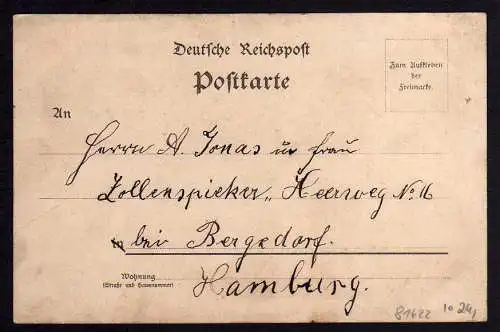 Deutsche Reichspost
Postkarte
Zum Aufkleben
der
Freimarke.
An
Herrn A. Jonas u. Frau
Zollenspieker, Heerweg No. 16
bei Bergedorf.
Wohnung
(Straße und Hausnummer)
Hamburg.
81622 10 24,